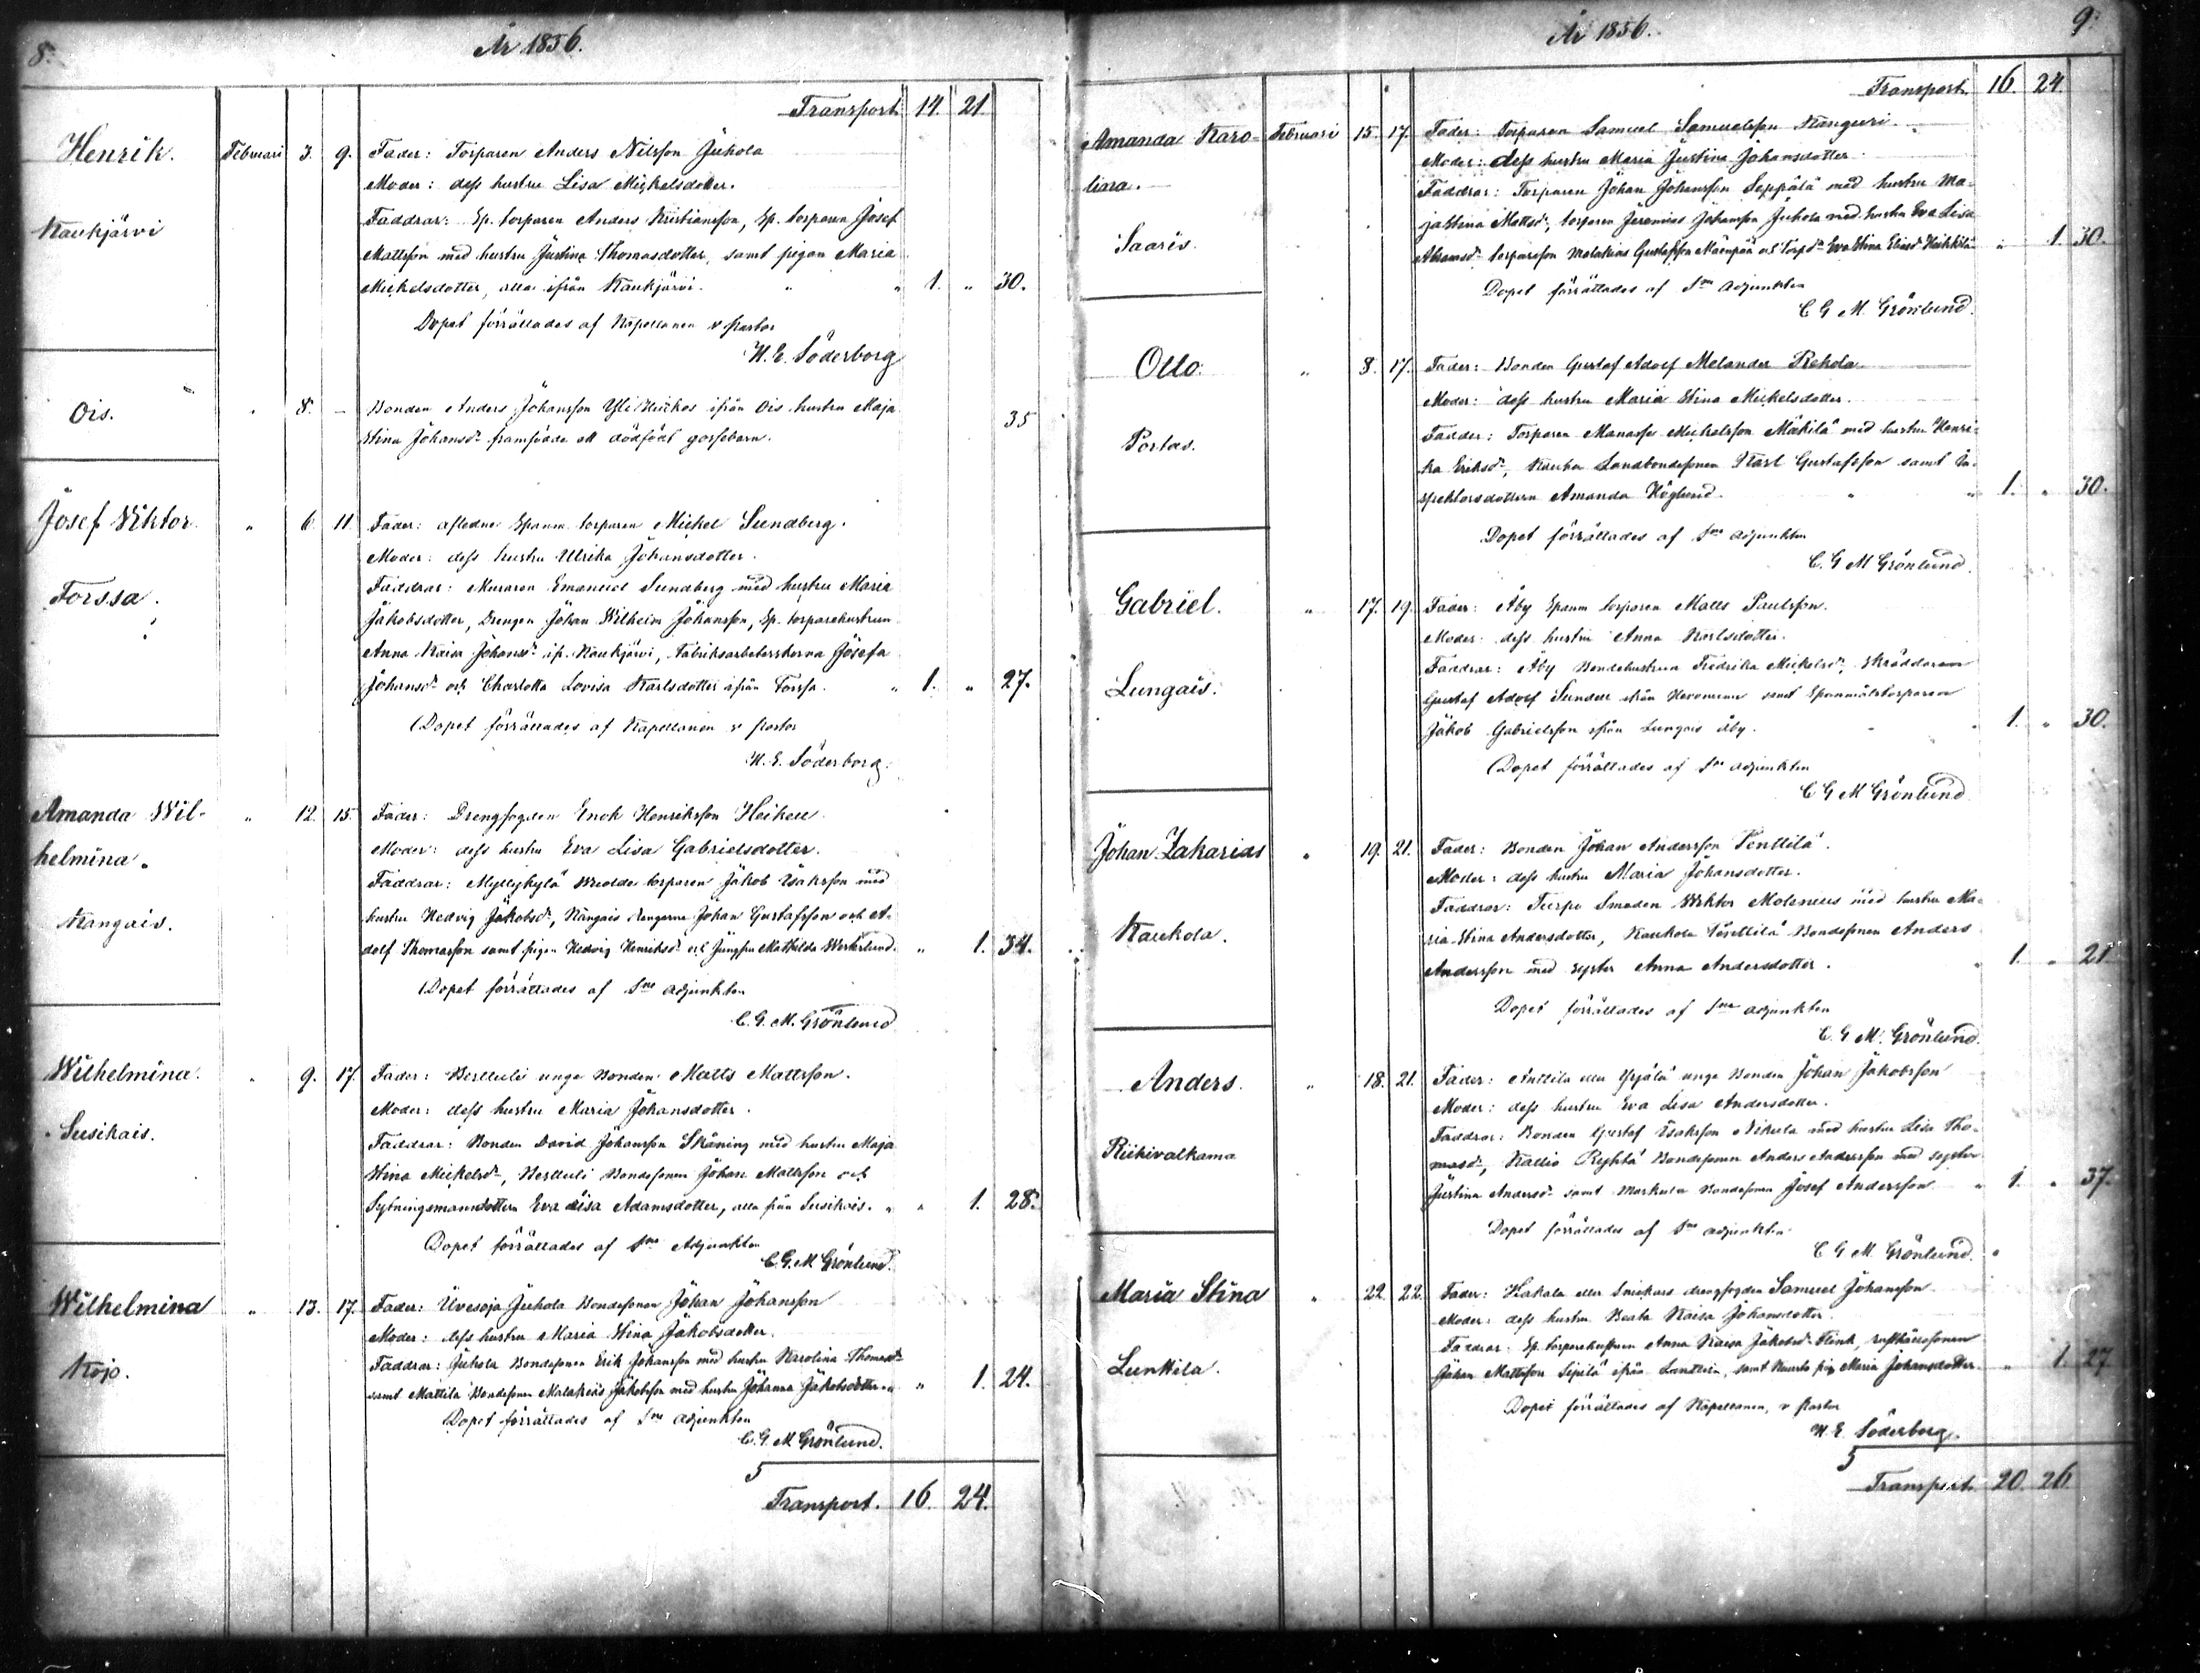 8.
År 1856.
Transport 14. 21.
Henrik. Februari 3. 9. Fader: Torparen Anders Nilsson Juhola
Moder: dess hustru Lisa Mickelsdotter.
Faddrar: Sp. torparen Anders Kristiansson, Sp. torparen Josef
Kaukjärvi Mattsson med hustru Justina Thomasdotter, samt pigan Maria
Mickelsdotter, alla ifrån Kaukjärvi. " " 1. " 30.
Dopet förrättades af Kapellanen v pastor
H. E. Söderborg
Ois. " 8. – Bonden Anders Johansson Yli ifrån Ois hustru Maja 35
Stina Johansdr framfödde ett dödfödt gossebarn.
Josef Viktor " 6. 11. Fader: aflidne Spanm torparen Mickel Sundberg.
Moder: dess hustru Ulrika Johansdotter.
Forssa. Faddrar: Muraren Emanuel Sundberg med hustru Maria
Jakobsdotter, Drengen Johan Wilhelm Johansson, Sp. torparehustrun
Anna Kaisa Johansdr ifr. Kaukjärvi, Fabriksarbeterskorna Josefa
Johansdr och Charlotta Lovisa Karlsdotter ifrån Forssa. " 1. " 27.
Dopet förrättades af Kapellanen v pastor
H. E. Söderborg.
Amanda Wil- " 12. 15. Fader: Drengfogden Enok Henriksson Heikell
helmina. Moder: dess hustru Eva Lisa Gabrielsdotter.
Faddrar: Myllykylä torparen Jakob Isaksson med
Kangais. hustru Hedvig Jakobsdr, Kangais drengarne Johan Gustafsson och A-
dolf Thomasson samt pigan Hedvig Henriksdr och Jungfru Mathilda Westerlund. " 1. 34.
Dopet förrättades af Sne adjunkten
C. G. M. Grönlund
Wilhelmina. " 9. 17. Fader: Perttuli unge Bonden Matts Mattsson.
Moder: dess hustru Maria Johansdotter.
Susikais. Faddrar: Bonden David Johansson Skåning med hustru Maja
Stina Mickelsdr, Perttuli Bondesonen Johan Mattsson och
Sytningsmansdottern Eva Lisa Adamsdotter, alla från Susikais. " " 1. 28.
Dopet förrättades af Sne Adjunkten
C. G. M. Grönlund.
Wilhelmina " 13. 17. Fader: Uvesoja Juhola Bondesonen Johan Johansson
Moder: dess hustru Maria Stina Jakobsdotter.
Kojo. Faddrar: Juhola Bondesonen Erik Johansson med hustru Karolina Thomasdr
samt Mattila Bondesonen Malakias Jakobsson med hustru Johanna Jakobsdotter. " " 1. 24.
Dopet förrättades af Sne adjunkten
C. G. M. Grönlund.
5
Transport. 16. 24.
År 1856.
9.
Transport 16. 24.
Amanda Karo- Februari 15. 17. Fader: torparen Samuel Samuelsson Kanguri.
liara. Moder: dess hustru Maria Justina Johansdotter.
Faddrar: Torparen Johan Johansson Seppälä med hustru Ma-
Saaris. ja Stina Mattsdr, torparen Jeremias Johansson Juhola med hustru Eva Lisa
Abramsdr torparesson Malakias Gustafsson Mäenpää och Torpdr Eva Stina Eliasdr Heikkilä " 1. 30.
Dopet förrättades af Sne adjunkten
C G M. Grönlund.
Otto. " 8. 17. Fader: Bonden Gustaf Adolf Melander Rekola
Moder: dess hustru Maria Stina Mickelsdotter.
Portas. Fadder: Torparen Manasse Mickelsson Mäkilä med hustru Henri-
ka Eriksdr, Landbondesonen Karl Gustafsson samt In-
spektorsdottern Amanda Höglund. " " 1. " 30.
Dopet förrättades af Sne adjunkten
C. G. M Grönlund.
Gabriel. " 17. 19. Fader: Åby Spanm torparen Matts Paulsson.
Moder: dess hustru Anna Karlsdotter.
Faddrar: Åby Bondehustrun Fredrika Mickelsdr, Skräddaren
Lungais. Gustaf Adolf Sundell ifrån samt Spanmålstorparen
Jakob Gabrielsson ifrån Lungais åby. " " 1. " 30.
Dopet förrättades af Sne adjunkten
C G M Grönlund
Johan Zakarias " 19. 21. Fader: Bonden Johan Andersson Penttilä.
Moder: dess hustru Maria Johansdotter.
Faddrar: Turpo Smeden Viktor Molenius med hustru Ma-
Kaukola. ria Stina Andersdotter, Kaukola Penttilä Bondesonen Anders
Andersson med syster Anna Andersdotter. " 1. " 21
Dopet förrättades af Sne adjunkten
C. G M. Grönlund.
Anders. " 18. 21. Fader: Anttila eller Yrjälä unge Bonden Johan Jakobsson
Moder: dess hustru Eva Lisa Andersdotter.
Riihivalkama Faddrar: Bonden Gustaf Isaksson Nikula med hustru Lisa Tho-
masdr, Kallio Ryhtä Bondesonen Anders Andersson med syster
Justina Andersdr samt Markula Bondesonen Josef Andersson " 1. " 37.
Dopet förrättades af Sne adjunkten
C G M Grönlund.
Maria Stina " 22. 22. Fader: Hakala eller Snickars drengfogden Samuel Johansson
Moder: dess hustru Beata Kaisa Johansdotter.
Lunttila. Faddrar: Sp. torparehustrun Anna Kaisa Jakobsdr Flink, rusthållssonen
Johan Mattsson Sipilä ifrån samt pig. Maria Johansdotter. " 1. 27
Dopet förrättades af Kapellanen, v pastor
H. E. Söderborg.
5
Transport. 20. 26